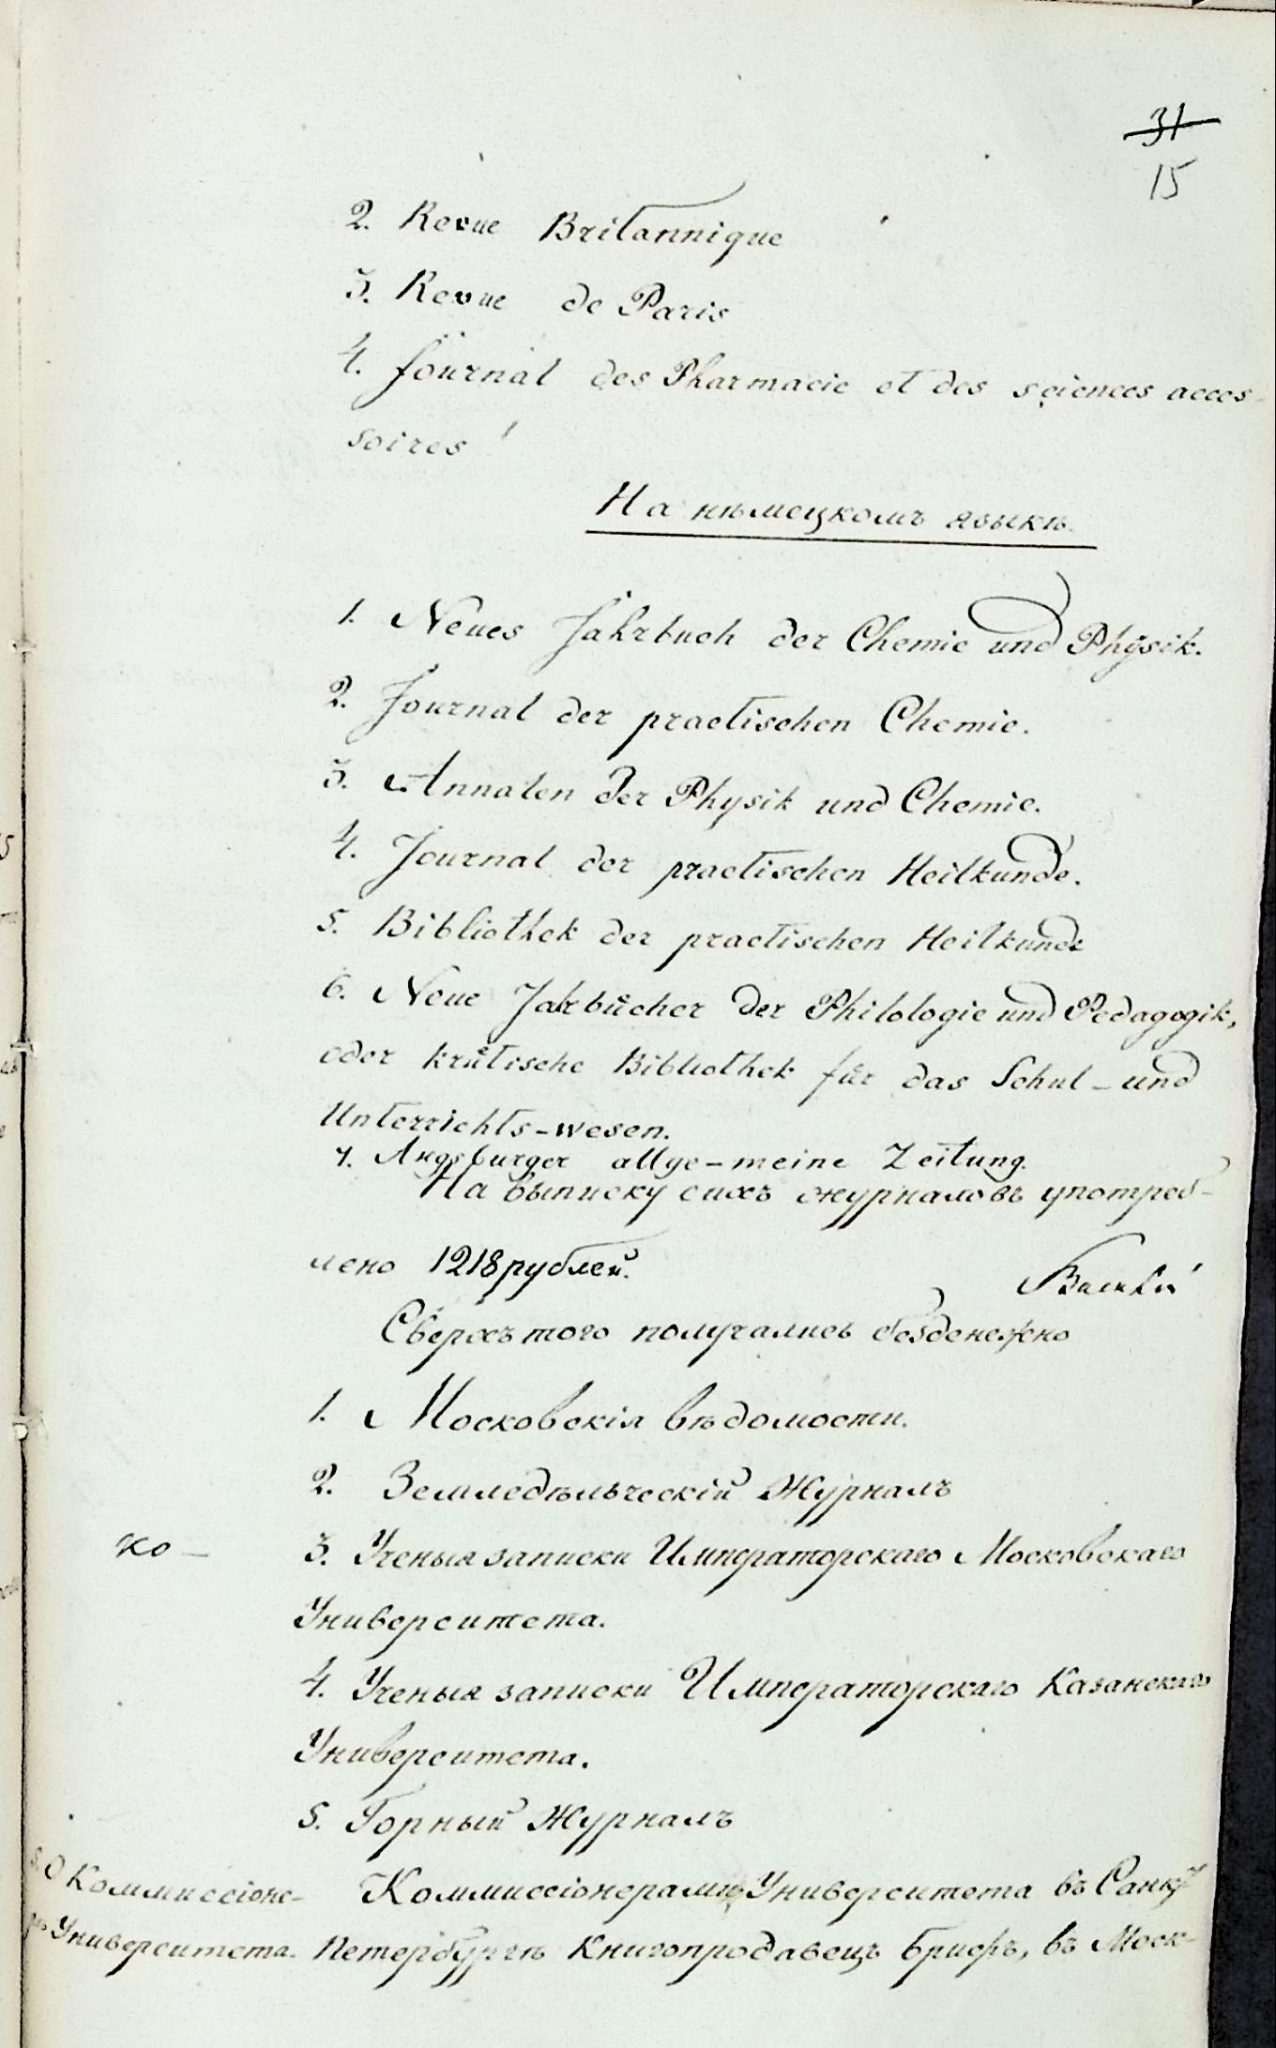 31
15
2. Revue Britannique
3. Revue de Paris
4. Journal des Pharmacie et des sciences acces-
soires
На нѣмецкомъ языкѣ.
1. Neues Jahrbuch der Chemie und Physik.
2. Journal der practischen Chemie.
3. Annalen der Physik und Chemie.
4. Journal der practischen Heilkunde.
5. Bibliothek der practischen Heilkunde
6. Neue Jahrbücher der Philologie und Pedagogik,
oder kritische Bibliothek für das Schul-und
Unterrichts-wesen.
7. Augsburger allge-meine Zeitung.
На выписку сихъ журналовъ употреб-
лено 1218 рублей.
Сверхъ того получались безденежно
1. Московскія вѣдомости.
2. Земледѣльческій Журналъ
ко-
3. Ученыя записки Императорскаго Московскаго
Университета.
4. Ученыя записки Императорскаго Казанскаго
Университета.
5. Горный Журналъ
О Коммиссіоне-
рѣ Университета.
Коммиссіонерами Университета въ Санкт
Петербургѣ Книгопродавецъ Брифъ, въ Моск-